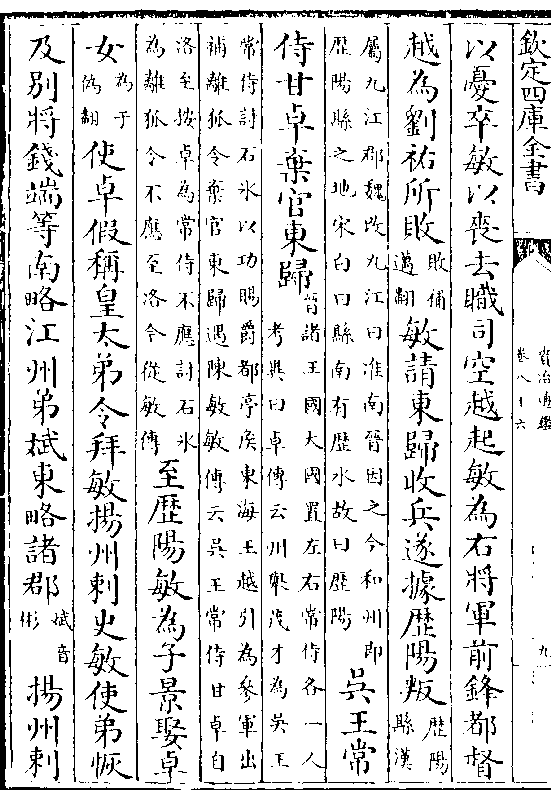 欽定四庫全書
資治通鑑
卷八十六
九
以憂卒敏以喪去職司空越起敏為右將軍前鋒都督
越為劉祐所敗
敗補
邁翻
敏請東歸收兵遂據歴陽叛
歴陽
縣漢
屬九江郡魏改九江曰淮南晉因之今和州即
歴陽縣之地宋白曰縣南有歴水故曰歴陽
吳王常
侍甘卓棄官東歸
晉諸王國大國置左右常侍各一人
考異曰卓傳云州舉茂才為吳王
常侍討石氷以功賜爵都亭侯東海王越引為參軍出
補離狐令棄官東歸遇陳敏敏傳云吳王常侍甘卓自
洛至按卓為常侍不應討石氷
為離狐令不應至洛今從敏傳
至歴陽敏為子景娶卓
女
為于
偽翻
使卓假稱皇太弟令拜敏揚州刺史敏使弟恢
及别將錢端等南略江州弟斌東略諸郡
斌音
彬
揚州刺